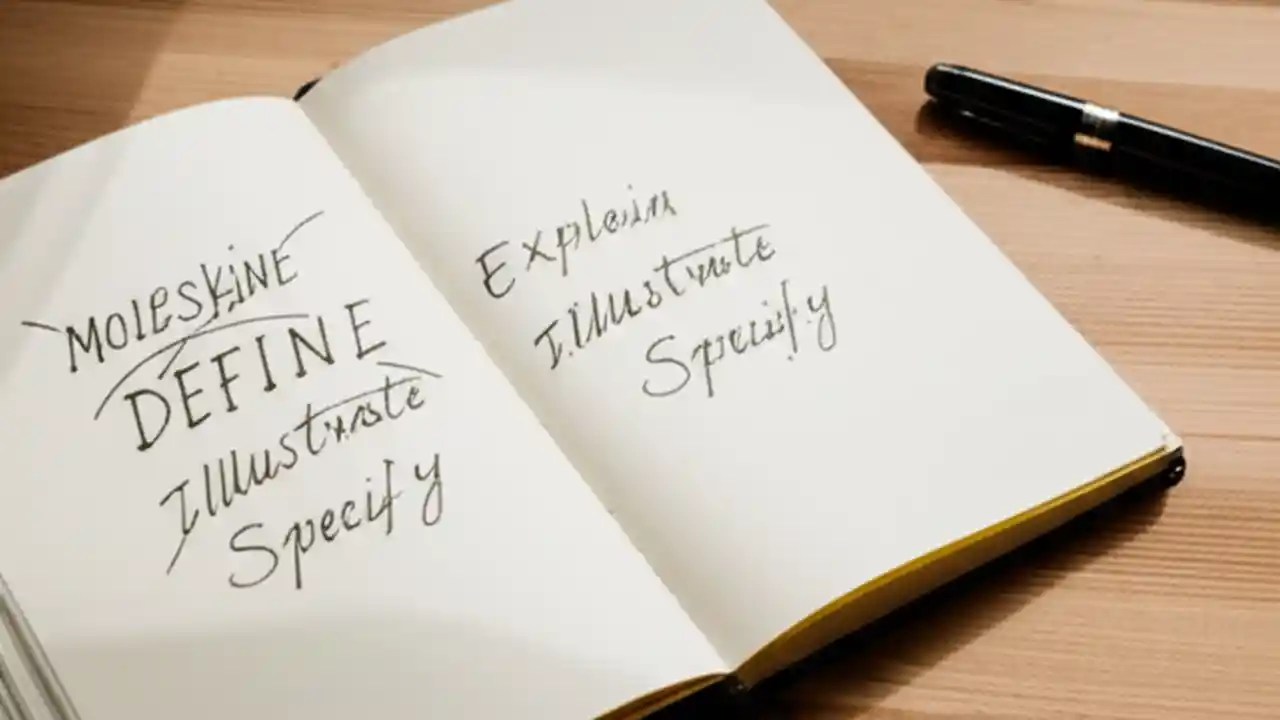 MOLESKINE
DEFINE
Illustrate
Specify
Explain
Illustrate
Specify